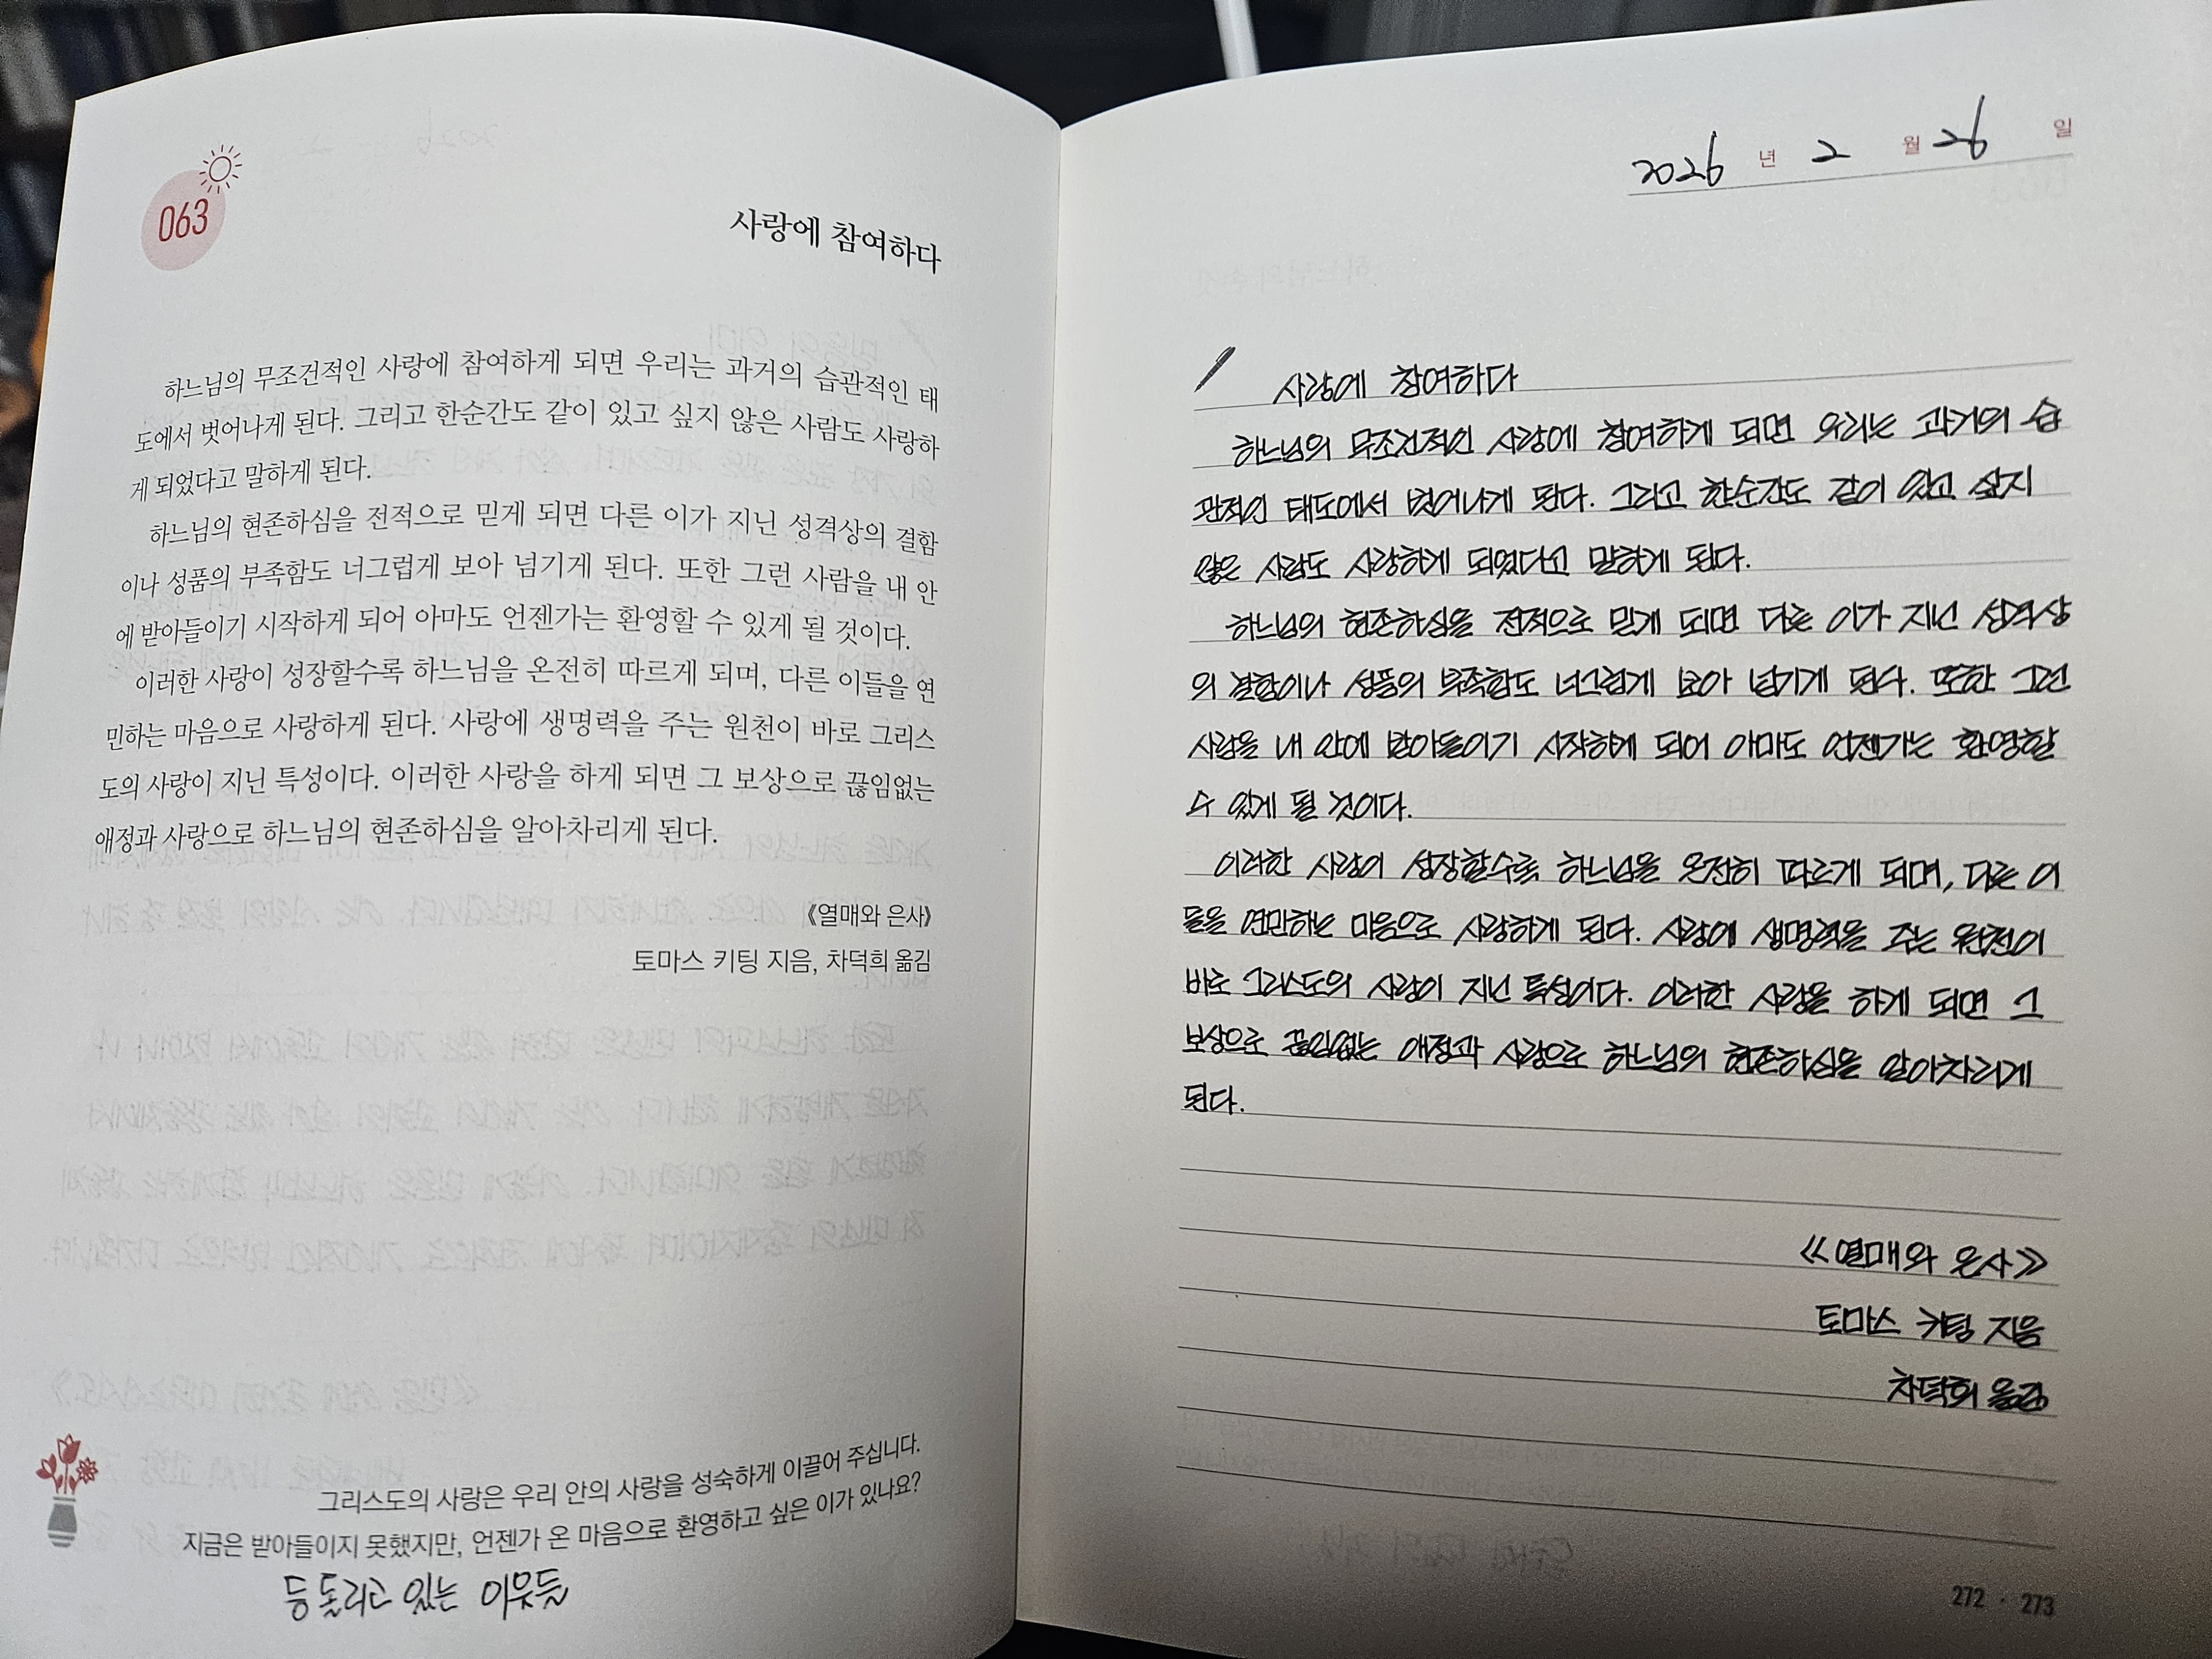 063
사랑에 참여하다
하느님의 무조건적인 사랑에 참여하게 되면 우리는 과거의 습관적인 태
도에서 벗어나게 된다. 그리고 한순간도 같이 있고 싶지 않은 사람도 사랑하
게 되었다고 말하게 된다.
하느님의 현존하심을 전적으로 믿게 되면 다른 이가 지닌 성격상의 결함
이나 성품의 부족함도 너그럽게 보아 넘기게 된다. 또한 그런 사람을 내 안
에 받아들이기 시작하게 되어 아마도 언젠가는 환영할 수 있게 될 것이다.
이러한 사랑이 성장할수록 하느님을 온전히 따르게 되며, 다른 이들을 연
민하는 마음으로 사랑하게 된다. 사랑에 생명력을 주는 원천이 바로 그리스
도의 사랑이 지닌 특성이다. 이러한 사랑을 하게 되면 그 보상으로 끊임없는
애정과 사랑으로 하느님의 현존하심을 알아차리게 된다.
《열매와 은사》
토마스 키팅 지음, 차덕희 옮김
그리스도의 사랑은 우리 안의 사랑을 성숙하게 이끌어 주십니다.
지금은 받아들이지 못했지만, 언젠가 온 마음으로 환영하고 싶은 이가 있나요?
등 돌리고 있는 이웃들
2026 년 2 월 26 일
사랑에 참여하다
하느님의 무조건적인 사랑에 참여하게 되면 우리는 과거의 습
관적인 태도에서 벗어나게 된다. 그리고 한순간도 같이 있고 싶지
않은 사람도 사랑하게 되었다고 말하게 된다.
하느님의 현존하심을 전적으로 믿게 되면 다른 이가 지닌 성격상
의 결함이나 성품의 부족함도 너그럽게 보아 넘기게 된다. 또한 그런
사람을 내 안에 받아들이기 시작하게 되어 아마도 언젠가는 환영할
수 있게 될 것이다.
이러한 사랑이 성장할수록 하느님을 온전히 따르게 되며, 다른 이
들을 연민하는 마음으로 사랑하게 된다. 사랑에 생명력을 주는 원천이
바로 그리스도의 사랑이 지닌 특성이다. 이러한 사랑을 하게 되면 그
보상으로 끊임없는 애정과 사랑으로 하느님의 현존하심을 알아차리게
된다.
《열매와 은사》
토마스 키팅 지음
차덕희 옮김
272 · 273